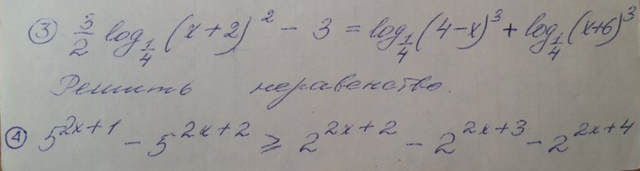 ③ 3/2 log_{1/4} (x+2)^2 − 3 = log_{1/4} (4−x)^3 + log_{1/4} (x+6)^3
Решить неравенство.
④ 5^{2x+1} − 5^{2x+2} ⩾ 2^{2x+2} − 2^{2x+3} − 2^{2x+4}